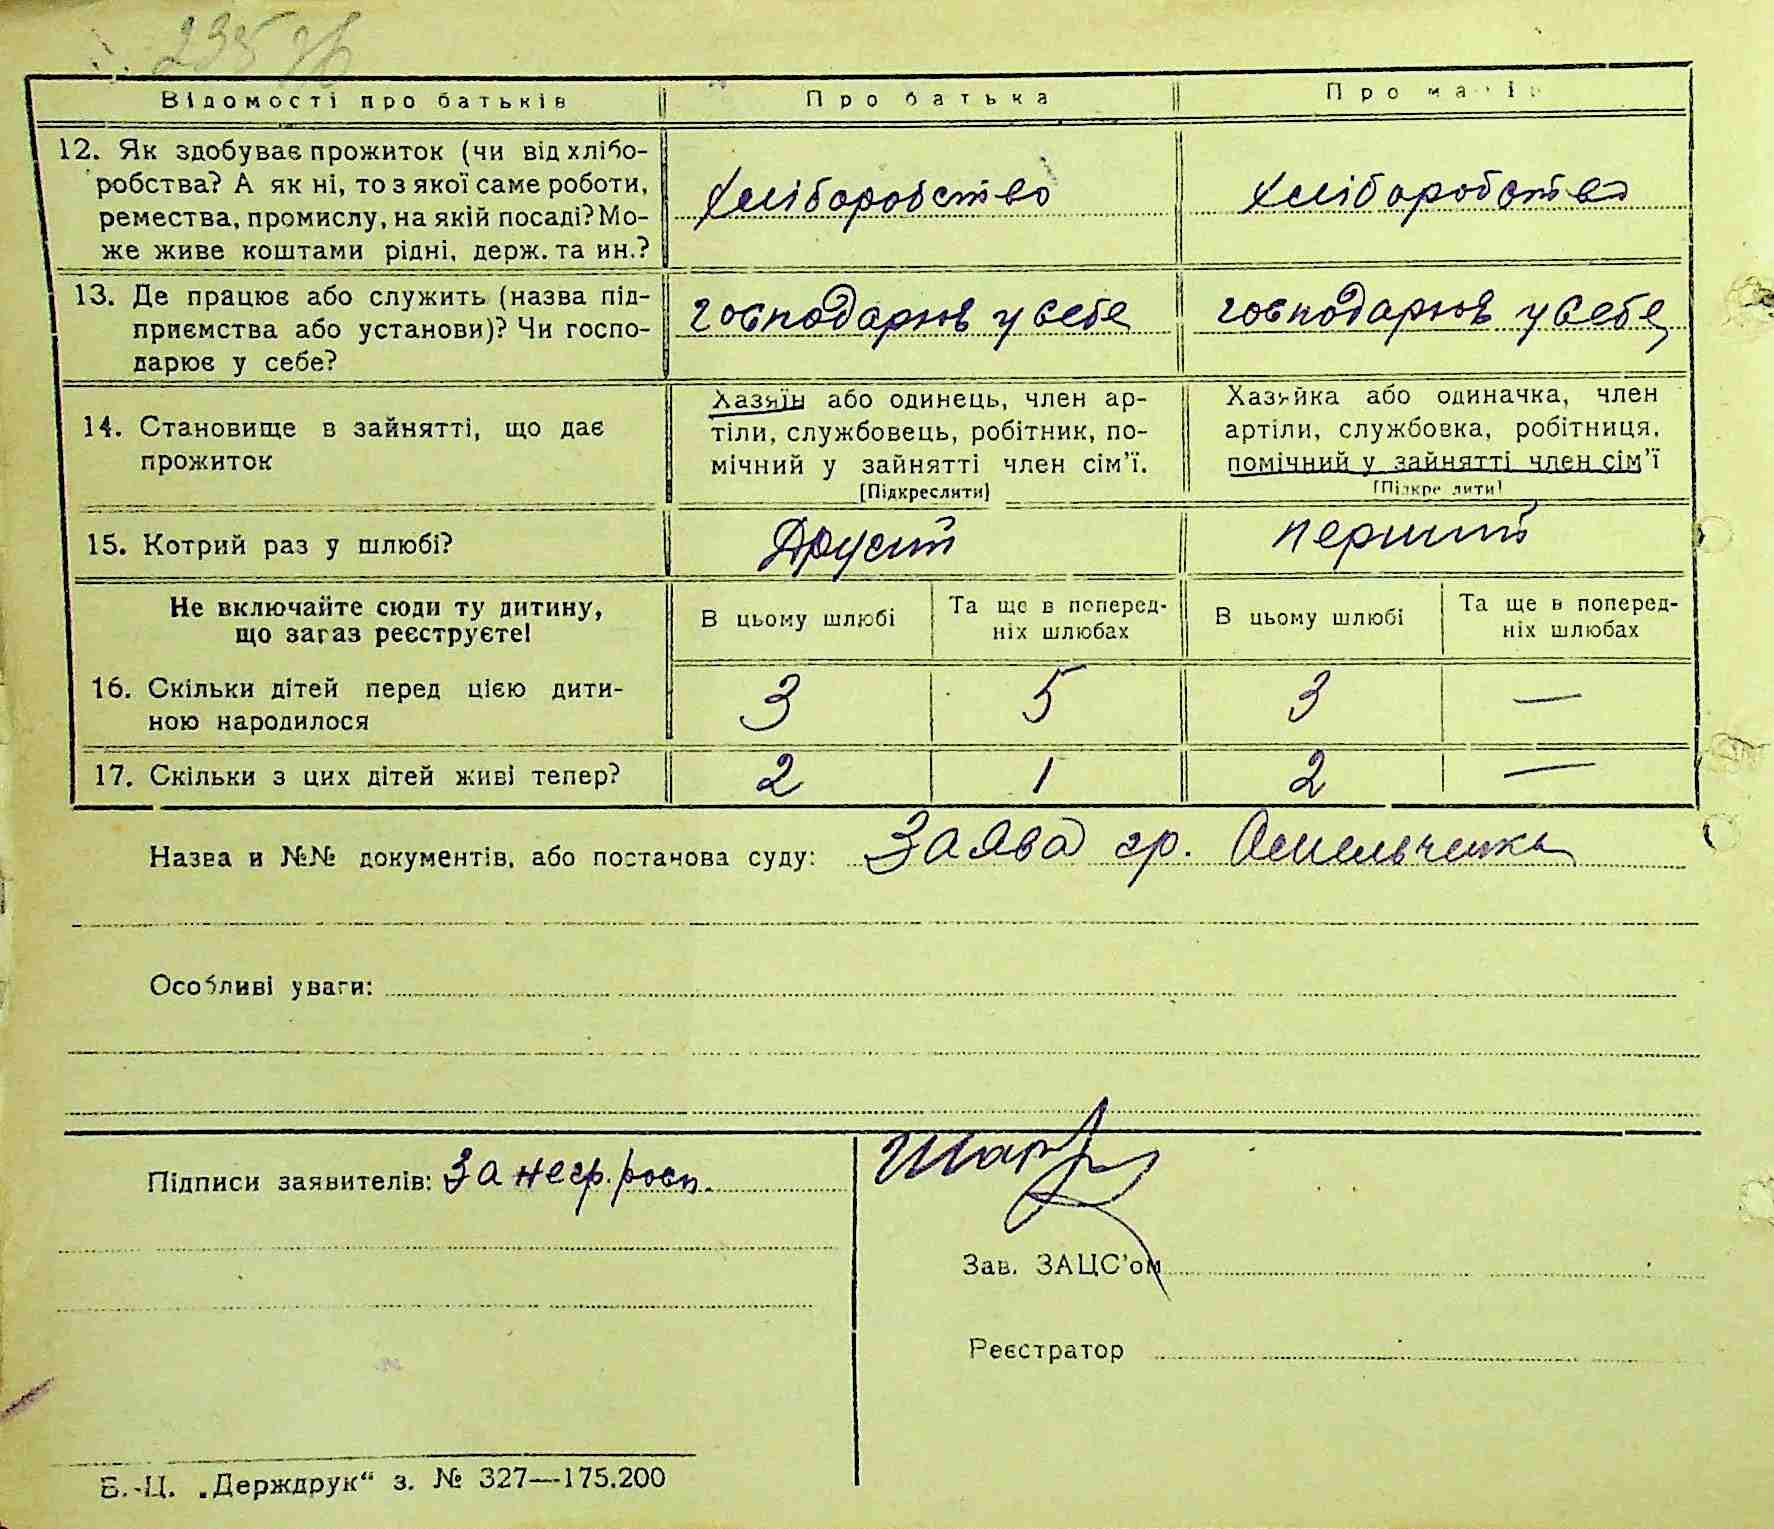 235
Відомості про батьків Про батька Про матір
12. Як здобуває прожиток (чи від хлібо-
робства? А як ні, то з якої саме роботи,
ремества, промислу, на якій посаді? Мо-
же живе коштами рідні, держ. та ин.?
хліборобство хліборобство
13. Де працює або служить (назва під-
приємства або установи)? Чи госпо-
дарює у себе?
господарює у себе господарює у себе
14. Становище в зайнятті, що дає
прожиток
Хазяїн або одинець, член ар-
тіли, службовець, робітник, по-
мічний у зайнятті член сім'ї.
(Підкреслити)
Хазяйка або одиначка, член
артіли, службовка, робітниця,
помічний у зайнятті член сім'ї
(Підкреслити)
15. Котрий раз у шлюбі? Другий перший
Не включайте сюди ту дитину,
що зараз реєструєте!
В цьому шлюбі Та ще в поперед-
ніх шлюбах В цьому шлюбі Та ще в поперед-
ніх шлюбах
16. Скільки дітей перед цією дити-
ною народилося 3 5 3 —
17. Скільки з цих дітей живі тепер? 2 1 2 —
Назва и №№ документів, або постанова суду: Заява гр. Омельченка
Особливі уваги:
Підписи заявителів: За негр. росп.
Зав. ЗАЦС'ом
Реєстратор
Б.-Ц. „Держдрук“ з. № 327—175.200